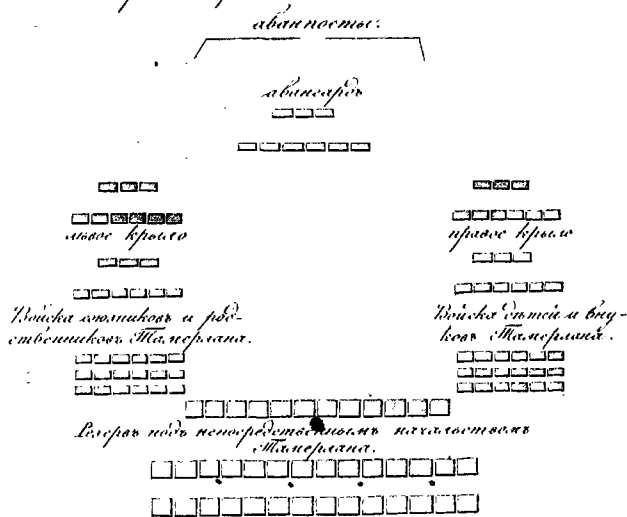 аванпосты.
авангардъ
лѣвое крыло
правое крыло
Войска союзниковъ и род-
ственниковъ Тамерлана.
Войска дѣтей и вну-
ковъ Тамерлана.
Резервъ подъ непосредственнымъ начальствомъ
Тамерлана.